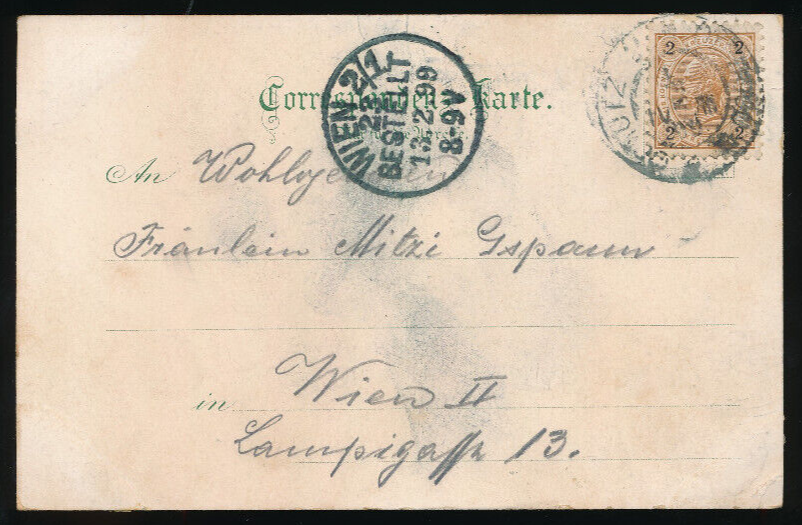 Correspondenz-Karte.
WIEN 2/1
22
BESTELLT
13.2.99
8-9V
2 KREUZER 2
2 2
An Wohlgeboren
Fräulein Mitzi Gspann
in Wien II
Lampigasse 13.